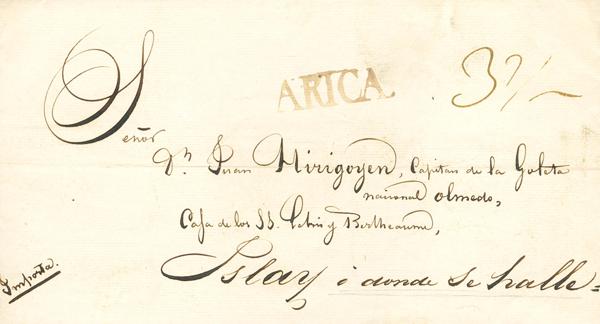 ARICA
3 1/2
Señor
Dn Juan Hirigoyen, Capitan de la Goleta
nacional Olmedo,
Casa de los SS. y Bertheaume,
Islay ó donde se halle=
Importa.